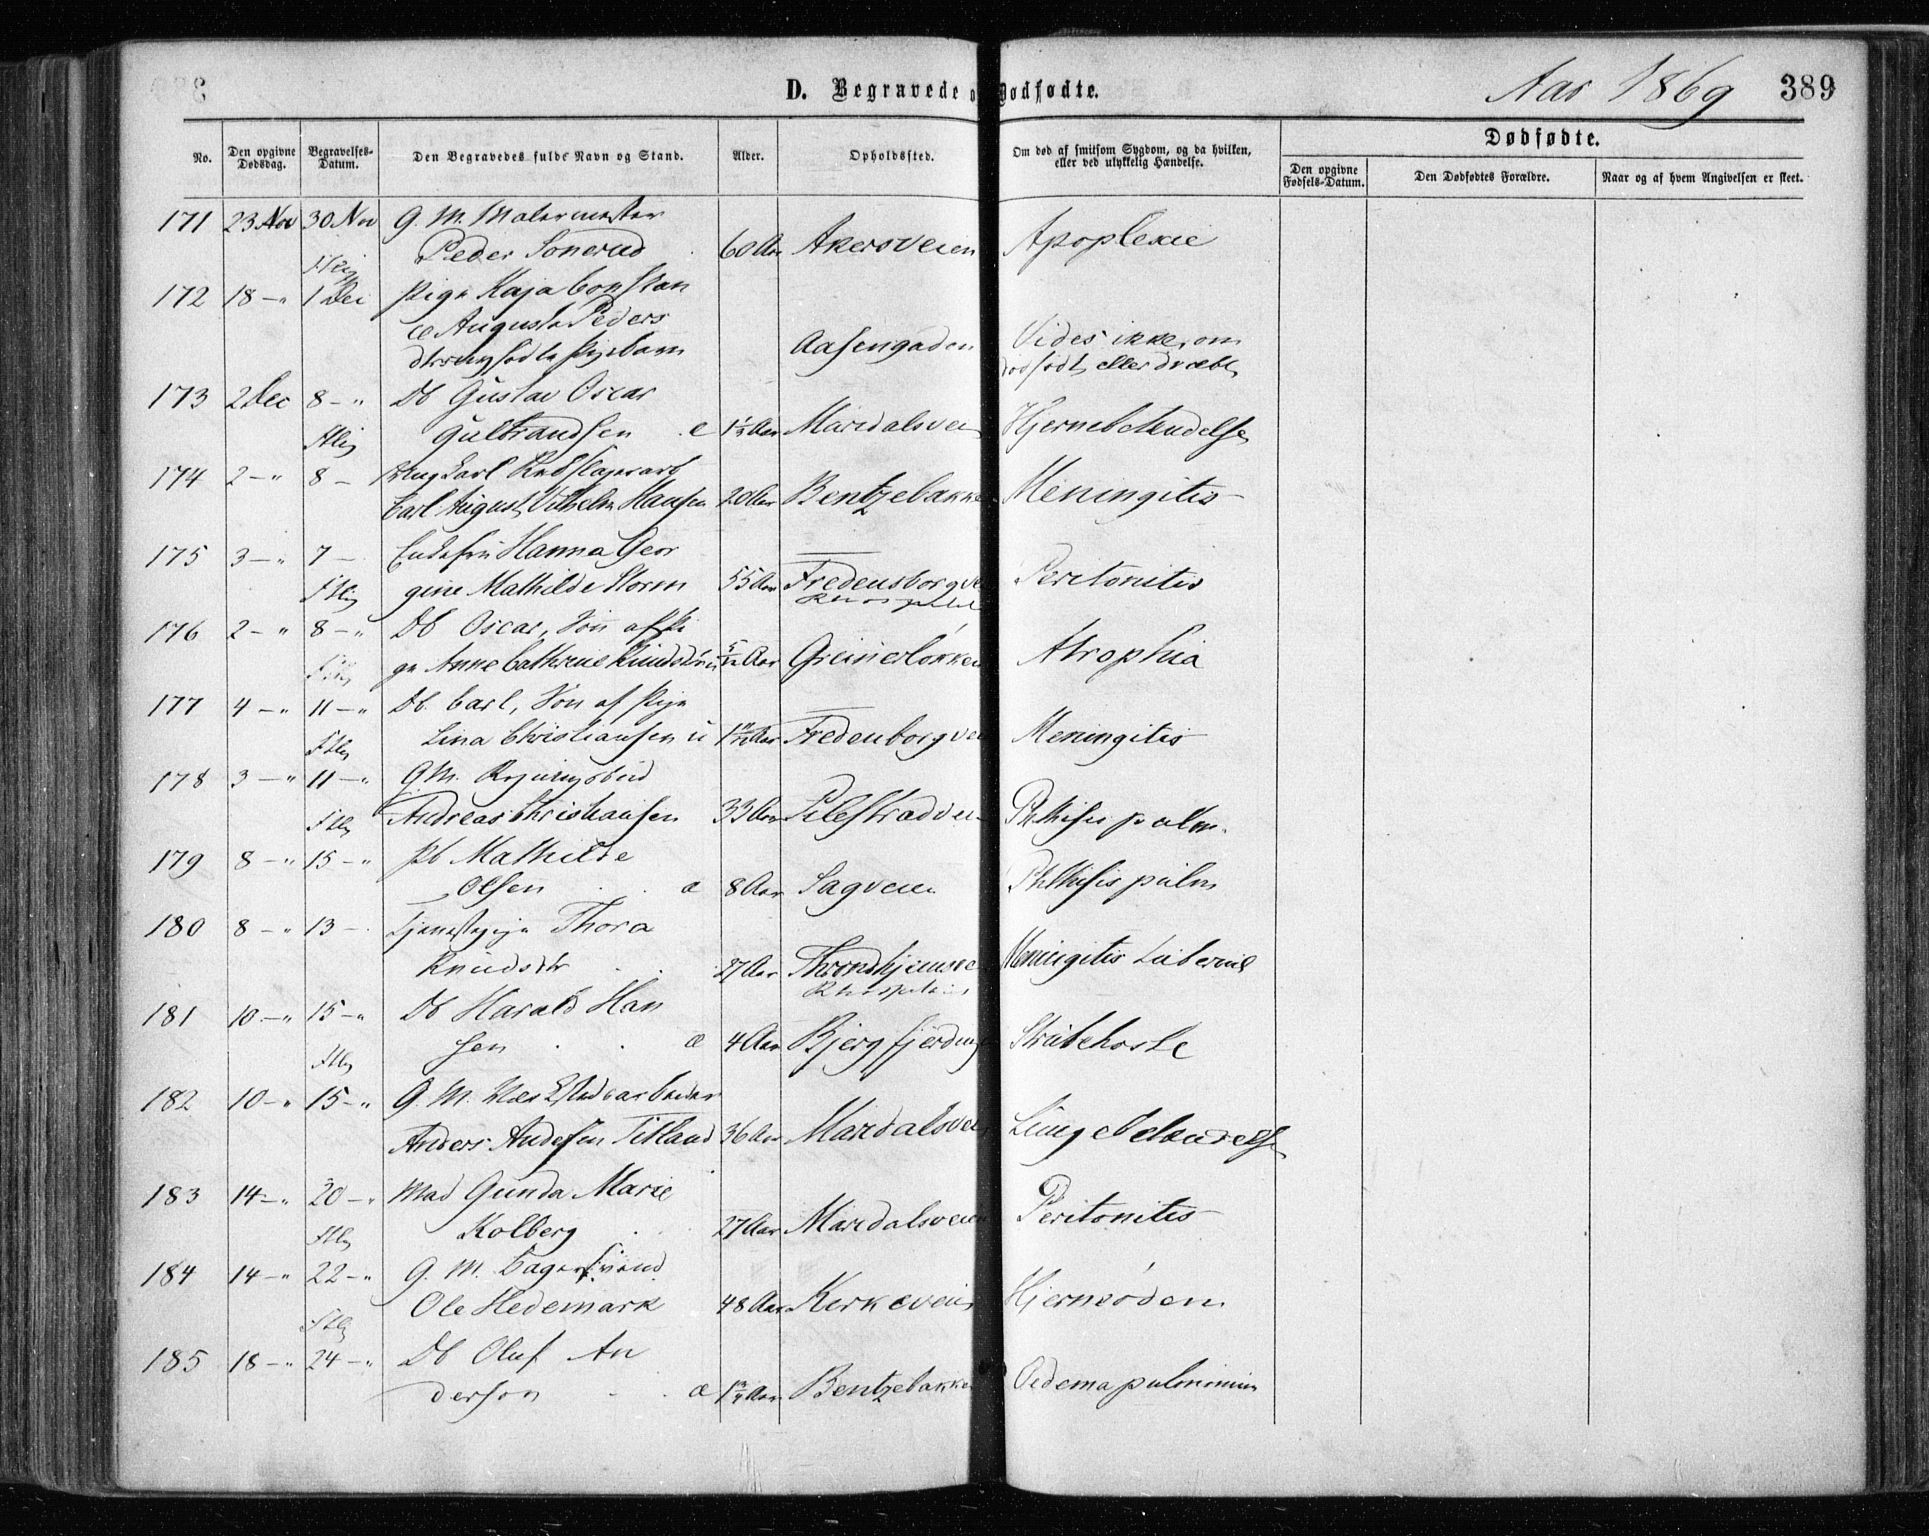 D. Begravede o Dødfødte. Aar 1869 389
No. Den opgivne Dødsdag. Begravelses-Datum. Den Begravedes fulde Navn og Stand. Alder. Opholdssted. Om død af smitsom Sygdom, og da hvilken, eller ved ulykkelig Hændelse. Dødfødte.
Den opgivne Fødsels-Datum. Den Dødfødtes Forældre. Naar og af hvem Angivelsen er skeet.
171 23 Nov 30 Nov G. M. Malermester
Peder Sonerud 60 Aar Akersveien Apoplexie
172 18 - " 1 Dec Pige Kaja Constan
ce Augusta Peders
Aasengaden Vides ikke, om
dødfødt eller dræbt
173 2 Dec 8 - " Db Gustav Oscar
Gulbrandsen e 1½ Aar Maridalsvei Hjernebetændelse
174 2 - " 8 -
Carl August Vilhelm Hansen 20 Aar Bentzebakke Meningitis
175 3 - " 7 - Enkefru Hanna Geor
gine Mathilde Storm 55 Aar Fredensborgve Peritonitis
176 2 - " 8 - " Db Oscar, Søn af Pi
ge Anne Cathrine u 5/12 Aar Grünerløkken Atrophia
177 4 - " 11 - " Db. Carl, Søn af Pige
Lina Christiansen u Aar Fredenborgvei Meningitis
178 3 - " 11 - " G. M.
Andreas Christiansen 33 Aar Pilestrædvei Phthisis pulm.
179 8 - " 15 - " Pb Mathilde
Olsen æ 8 Aar Sagveien Phthisis pulm
180 8 - " 13 - Tjenestepige Thora
Knudsdtr 27 Aar Throndhjemsve Meningitis Tubercul
181 10 - " 15 - " Db Harald Han
sen æ 4 Aar Bjergfjerding Strubehoste
182 10 - " 15 - " G. M. Værkstedsarbeider
Anders Andersen Titland 36 Aar Maridalsvei Lungebetændelse
183 14 - " 20 - " Mad Gunda Marie
Kolberg 27 Aar Maridalsveien Peritonitis
184 14 - " 22 - " G. M. Bagersvend
Ole Hedemark 48 Aar Kirkeveien Hjerneødem
185 18 - " 24 - " Db Oluf An
derson æ Aar Bentzebakke Oedema pulmonum